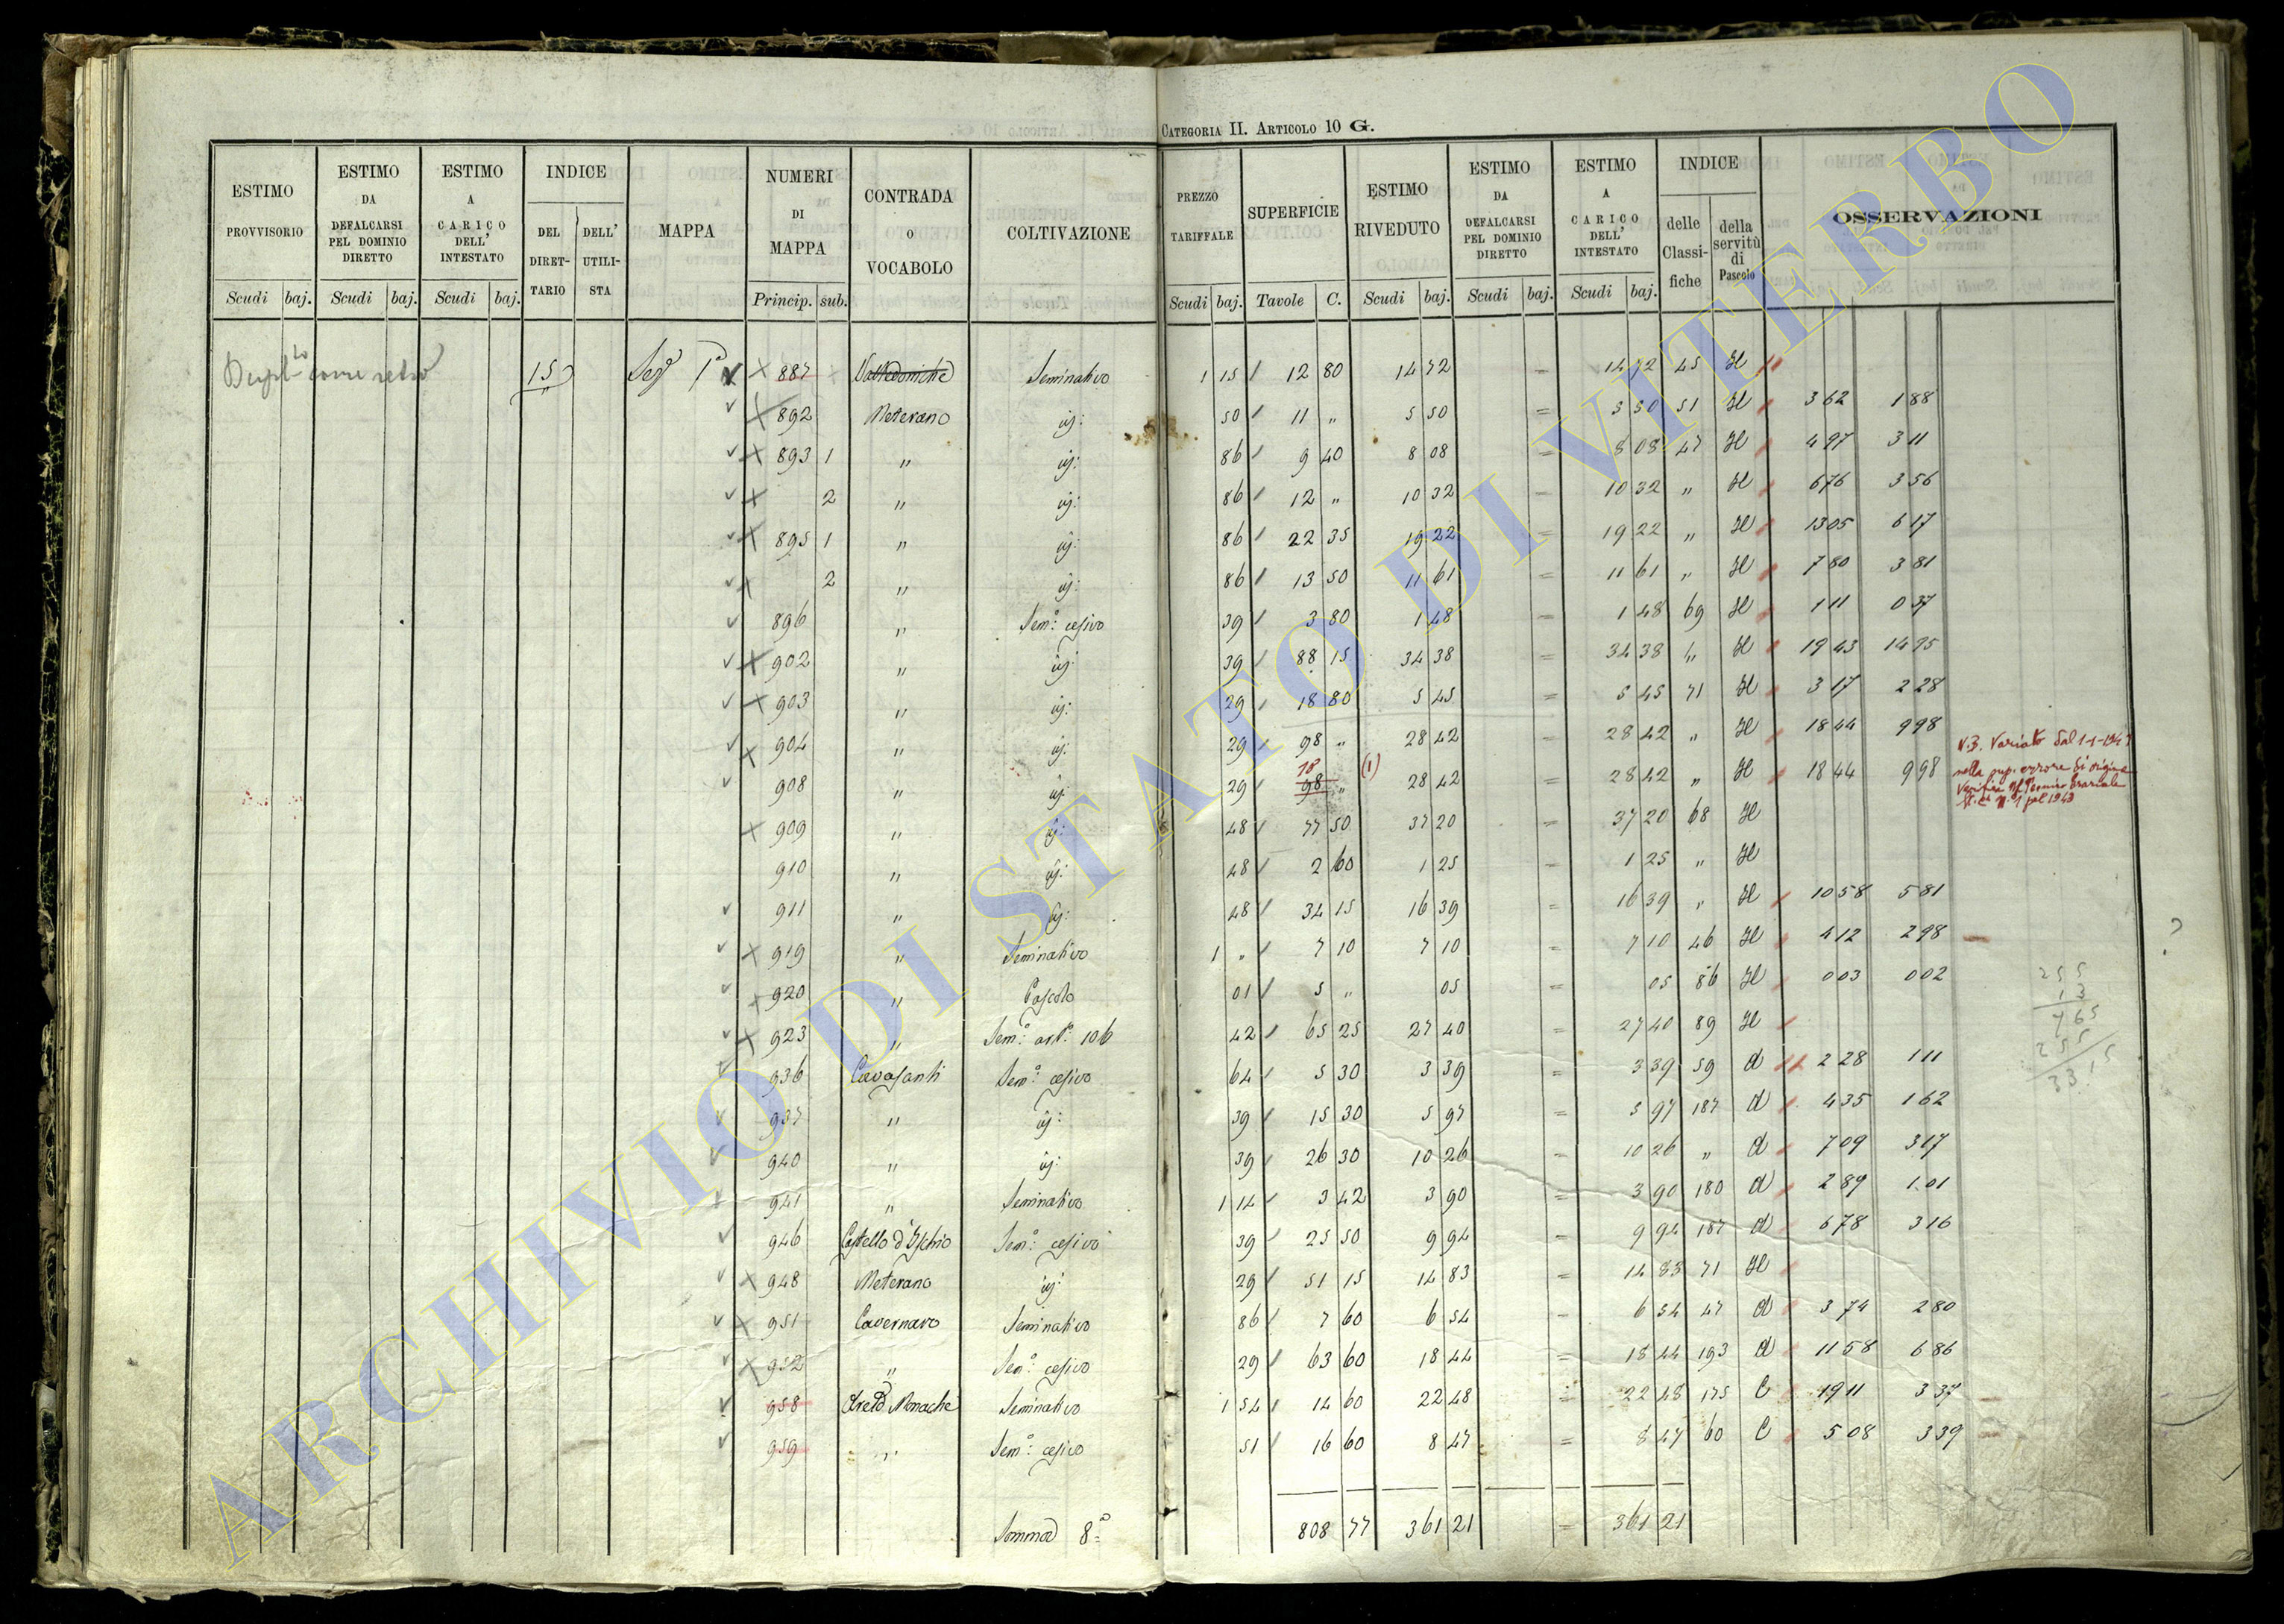 CATEGORIA II. ARTICOLO 10 G.
ESTIMO PROVVISORIO
Scudi baj.
ESTIMO DA DEFALCARSI PEL DOMINIO DIRETTO
Scudi baj.
ESTIMO A CARICO DELL' INTESTATO
Scudi baj.
INDICE
DEL DIRET- TARIO
DELL' UTILI- STA
MAPPA
NUMERI DI MAPPA
Princip. sub.
CONTRADA O VOCABOLO
COLTIVAZIONE
PREZZO TARIFFALE
Scudi baj.
SUPERFICIE
Tavole C.
ESTIMO RIVEDUTO
Scudi baj.
ESTIMO DA DEFALCARSI PEL DOMINIO DIRETTO
Scudi baj.
ESTIMO A CARICO DELL' INTESTATO
Scudi baj.
INDICE
delle Classi- fiche
della servitù di Pascolo
OSSERVAZIONI
come retro 15 887 Seminativo 1 15 12 80 14 72 = 14 72 45 H
892 Meterano id: 50 11 " 5 50 = 5 50 51 H 362 188
893 1 " id: 86 9 40 8 08 = 8 08 47 H 497 311
2 " id: 86 12 " 10 32 = 10 32 " H 676 356
895 1 " id: 86 22 35 19 22 = 19 22 " H 1305 617
2 " id: 86 13 50 11 61 = 11 61 " H 780 381
896 " Sem:º cesivo 39 3 80 1 48 = 1 48 69 H 111 037
902 " id: 39 88 15 34 38 = 34 38 " H 1943 1495
903 " id: 29 18 80 5 45 = 5 45 71 H 317 228
904 " id: 29 98 " 28 42 = 28 42 " H 1844 998
908 " id: 29 18 98 " (1) 28 42 = 28 42 " H 1844 998
V.B. Variato dal 1-1-194
nella sup. errore di origine
909 " id: 48 77 50 37 20 = 37 20 68 H
910 " id: 48 2 60 1 25 = 1 25 " H
911 " id: 48 34 15 16 39 = 16 39 " H 1058 581
919 " Seminativo 1 " 7 10 7 10 = 7 10 46 H 412 298
920 " Pascolo 01 5 " 05 = 05 86 H 003 002
923 " Sem:º art:º 106 42 65 25 27 40 = 27 40 89 H
936 Cavasanti Sem:º cesivo 64 5 30 3 39 = 3 39 59 d 228 111
937 " id: 39 15 30 5 97 = 5 97 187 d 435 162
940 " id: 39 26 30 10 26 = 10 26 " d 709 317
941 " Seminativo 1 14 3 42 3 90 = 3 90 180 d 289 101
946 Castello d'Ischio Sem:º cesivo 39 25 50 9 94 = 9 94 187 d 678 316
948 Meterano id: 29 51 15 14 83 = 14 83 71 H
951 Cavernaro Seminativo 86 7 60 6 54 = 6 54 47 d 374 280
952 " Sem:º cesivo 29 63 60 18 44 = 18 44 193 d 1158 686
958 Monache Seminativo 1 54 14 60 22 48 = 22 48 175 C 1911 337
959 " Sem:º cesivo 51 16 60 8 47 = 8 47 60 C 508 339
255
13
765
255
3315
?
Somma 8ª 808 77 361 21 = 361 21
ARCHIVIO DI STATO DI VITERBO